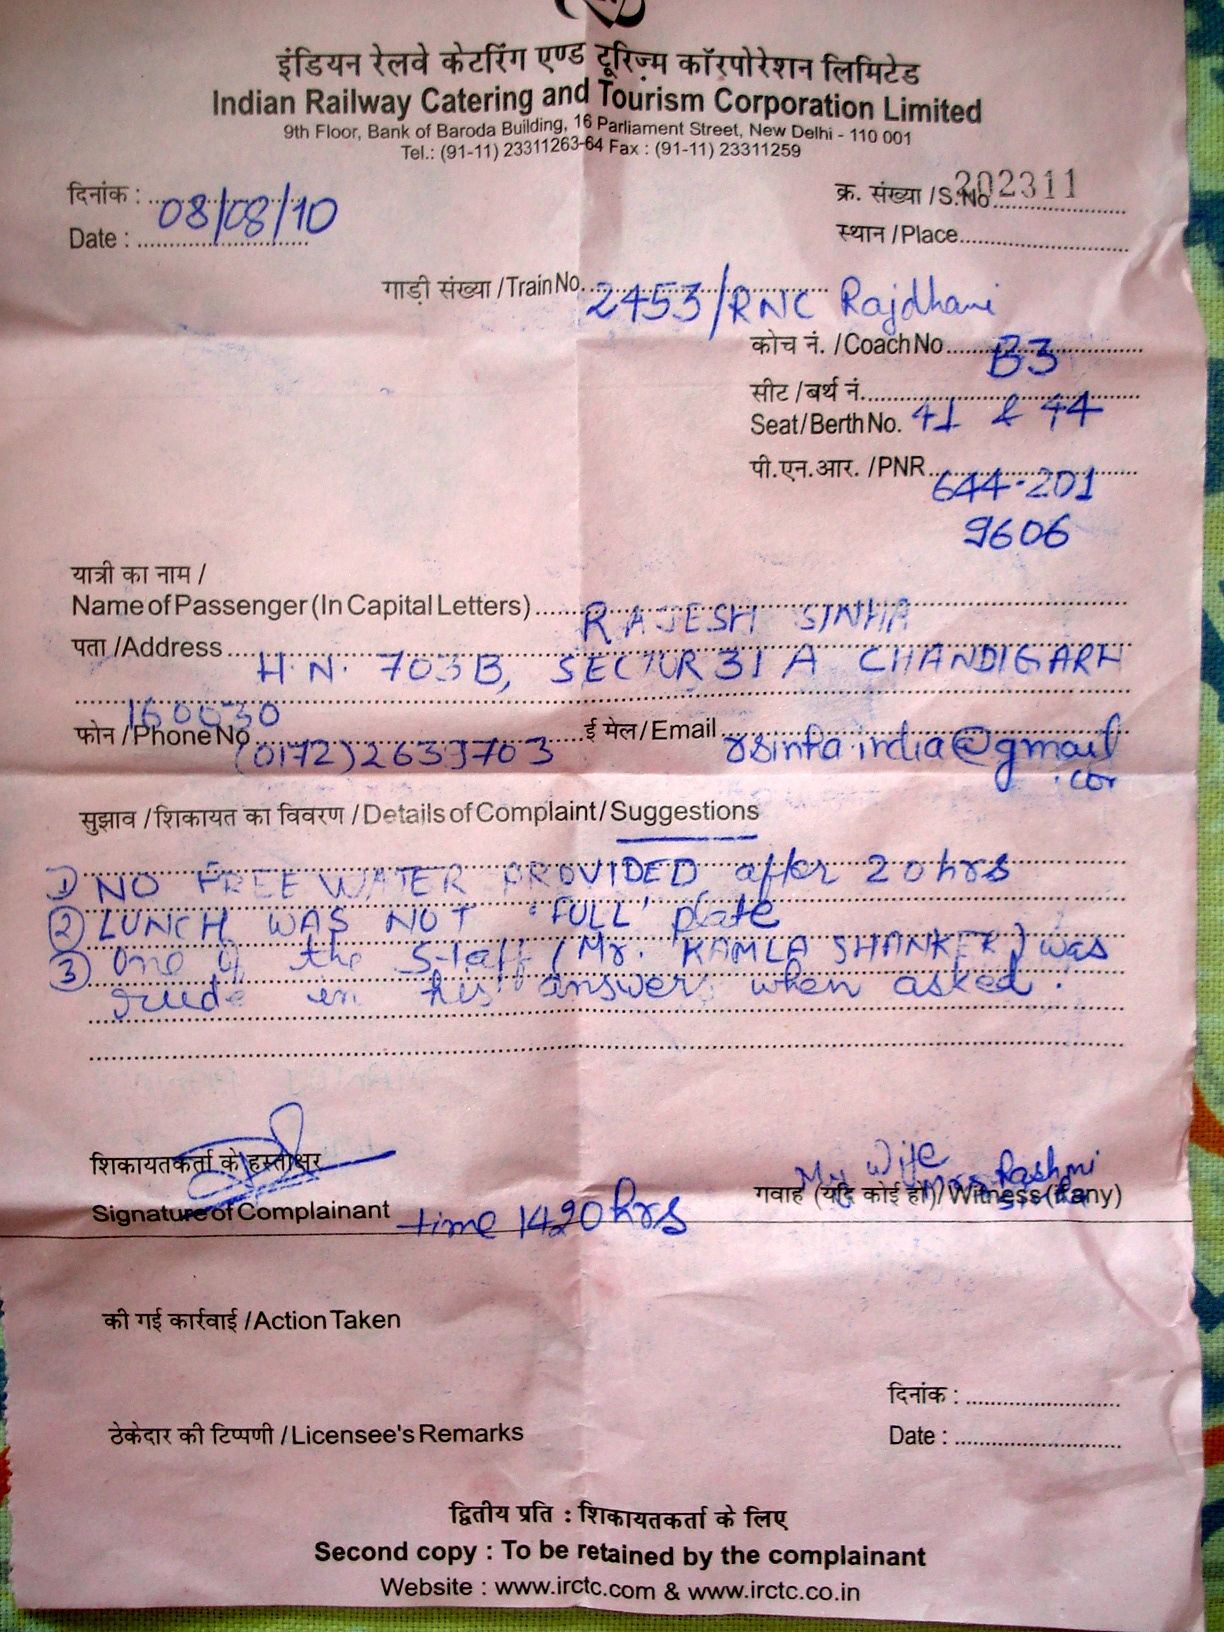 इंडियन रेलवे केटरिंग एण्ड टूरिज्म कॉरपोरेशन लिमिटेड
Indian Railway Catering and Tourism Corporation Limited
9th Floor, Bank of Baroda Building, 16 Parliament Street, New Delhi - 110 001
Tel.: (91-11) 23311263-64 Fax : (91-11) 23311259
दिनांक :
Date : 08/08/10
क्र. संख्या / S.No 202311
स्थान / Place
गाड़ी संख्या / Train No. 2453/RNC Rajdhani
कोच नं. / Coach No B3
सीट / बर्थ नं.
Seat/Berth No. 41 & 44
पी.एन.आर. / PNR 644-201
9606
यात्री का नाम /
Name of Passenger (In Capital Letters) RAJESH SINHA
पता / Address H.N. 703B, SECTOR 31 A CHANDIGARH
160030
फोन / Phone No (0172)2639703 ई मेल / Email rsinha.india@gmail
सुझाव / शिकायत का विवरण / Details of Complaint / Suggestions
1) NO FREE WATER PROVIDED after 20hrs
2) LUNCH WAS NOT 'FULL' plate
3) One of the Staff (Mr. KAMLA SHANKER) was
rude in his answers when asked.
शिकायतकर्ता के हस्ताक्षर
Signature of Complainant time 1420hrs
My Wife
Mrs Rashmi
गवाह (यदि कोई हो) / Witness (if any)
की गई कार्रवाई / Action Taken
दिनांक :
ठेकेदार की टिप्पणी / Licensee's Remarks
Date :
द्वितीय प्रति : शिकायतकर्ता के लिए
Second copy : To be retained by the complainant
Website : www.irctc.com & www.irctc.co.in